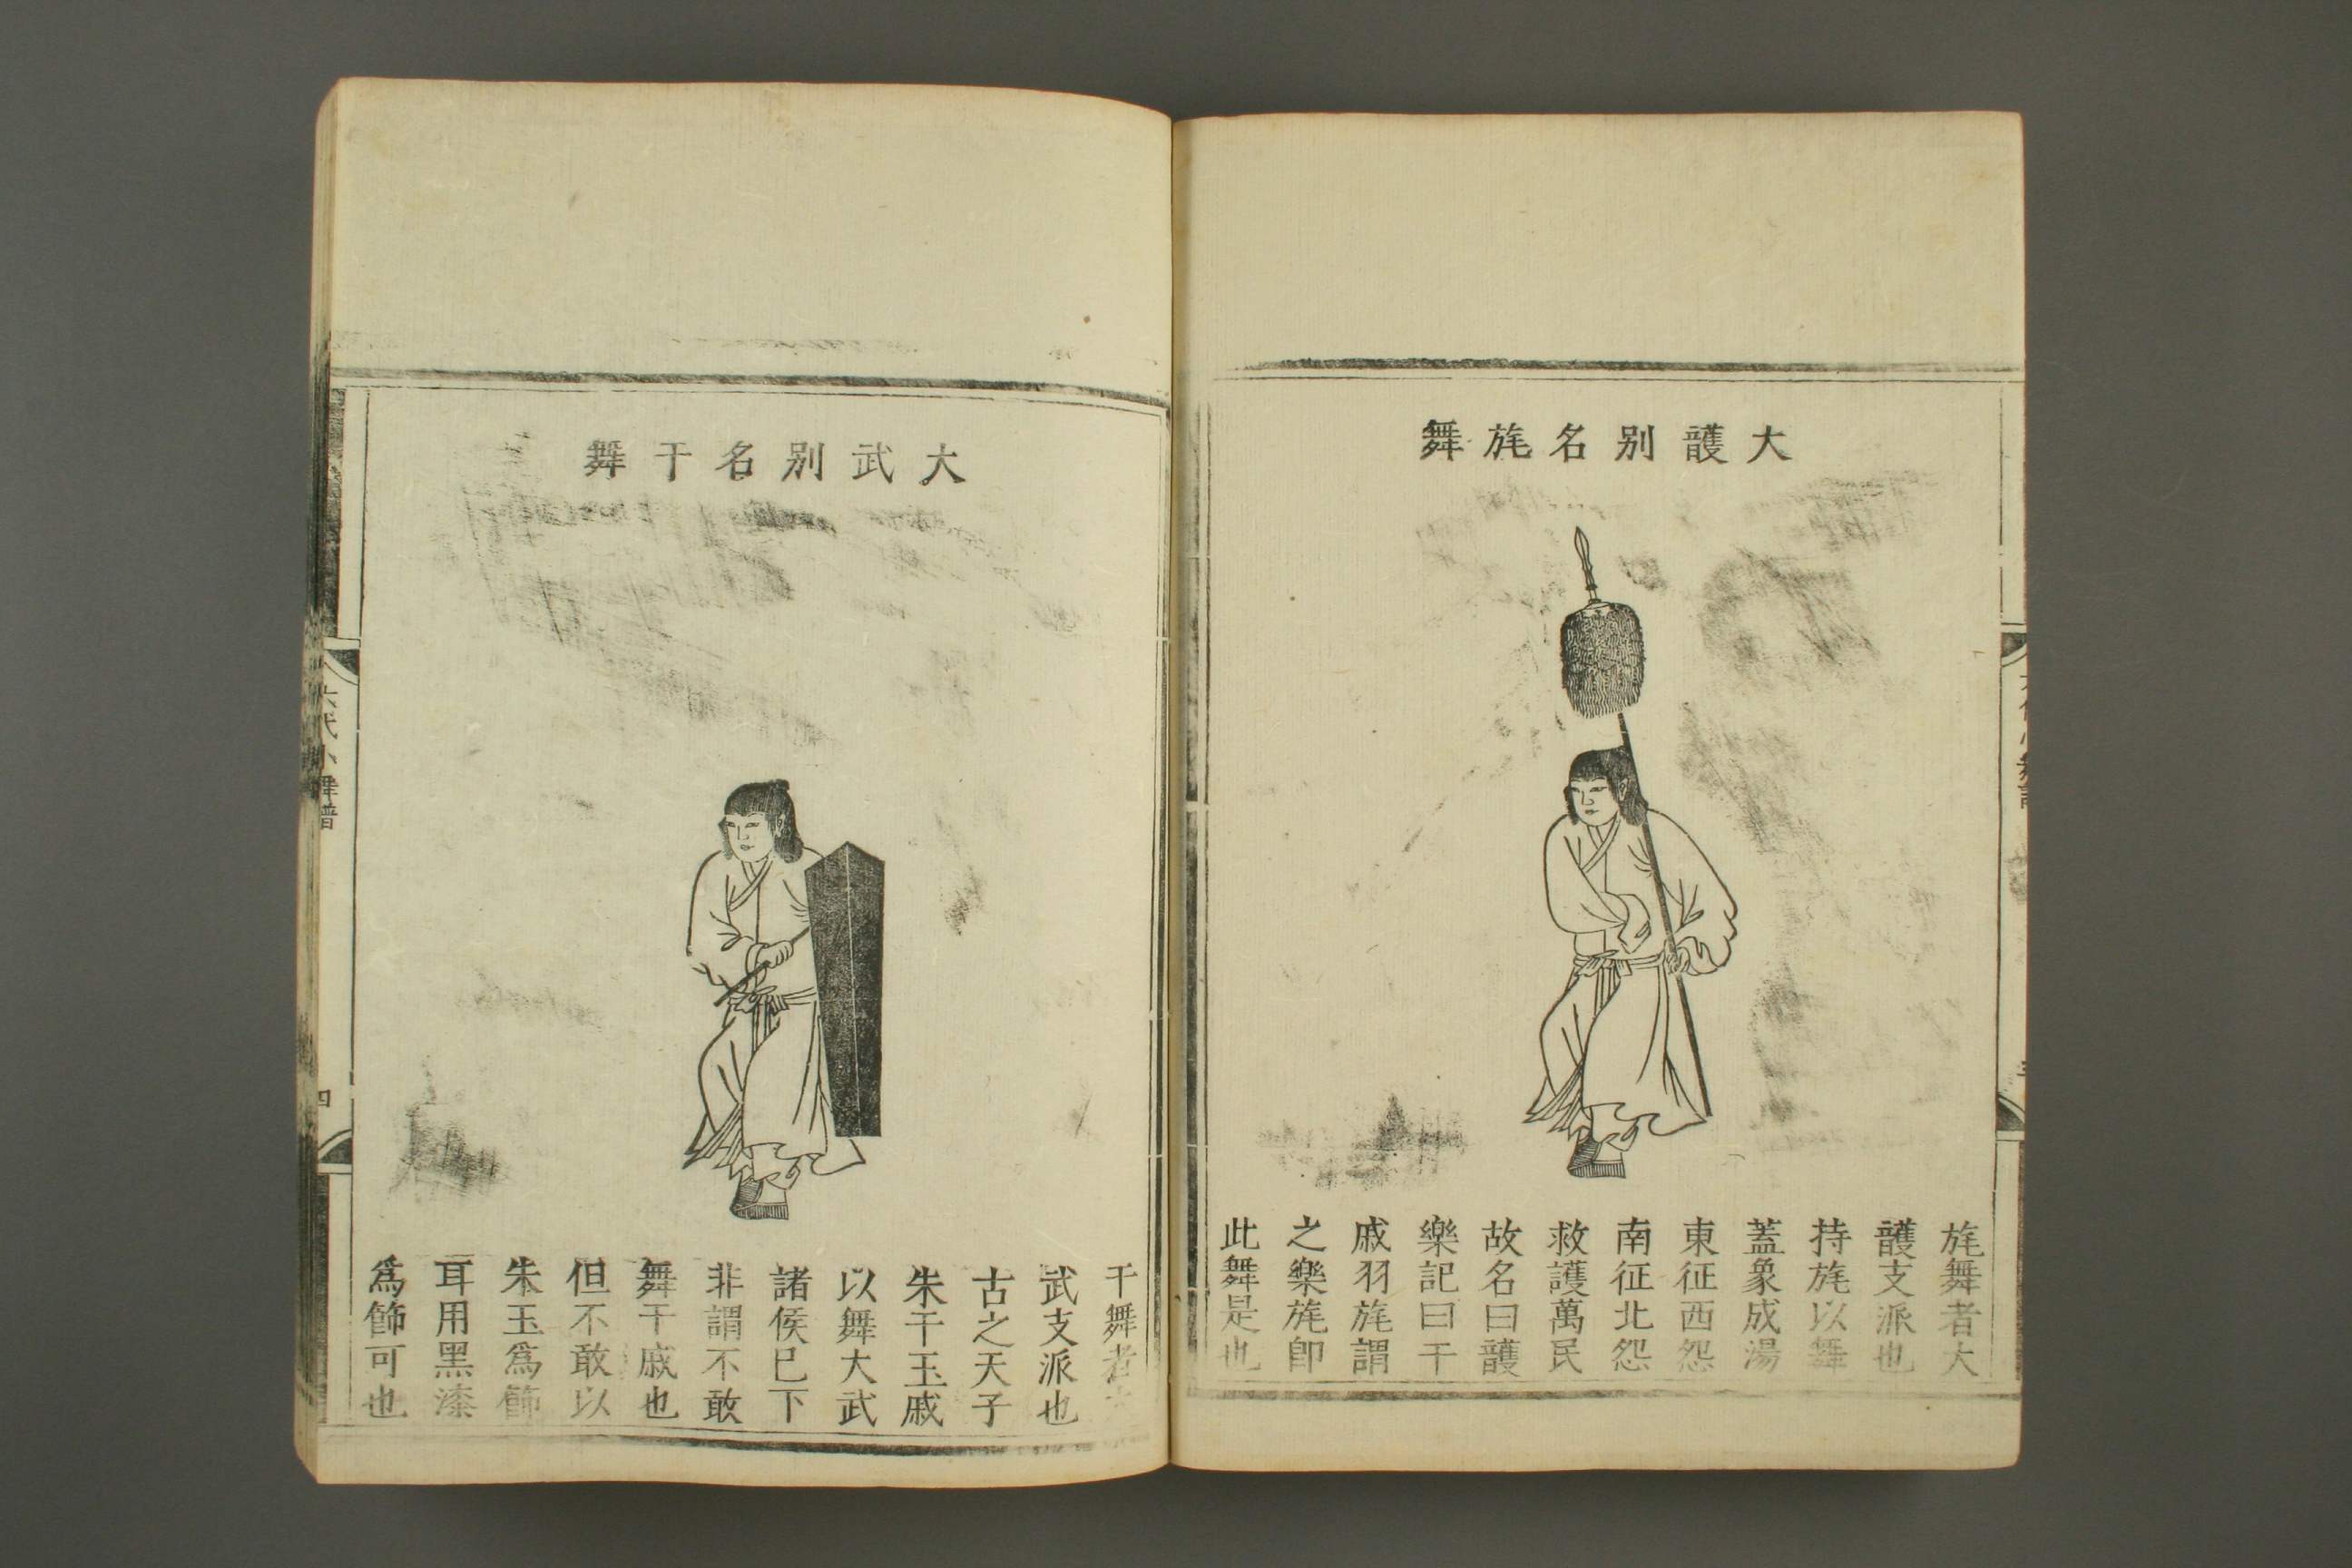 大頀别名旄舞
旄舞者大
頀支派也
持旄以舞
蓋象成湯
東征西怨
南征北怨
救護萬民
故名曰頀
樂記曰干
戚羽旄謂
之樂旄卽
此舞是也
大武别名干舞
干舞者大
武支派也
古之天子
朱干玉戚
以舞大武
諸侯已下
非謂不敢
舞干戚也
但不敢以
朱玉爲飾
耳用黑漆
爲飾可也
六代小舞譜
四